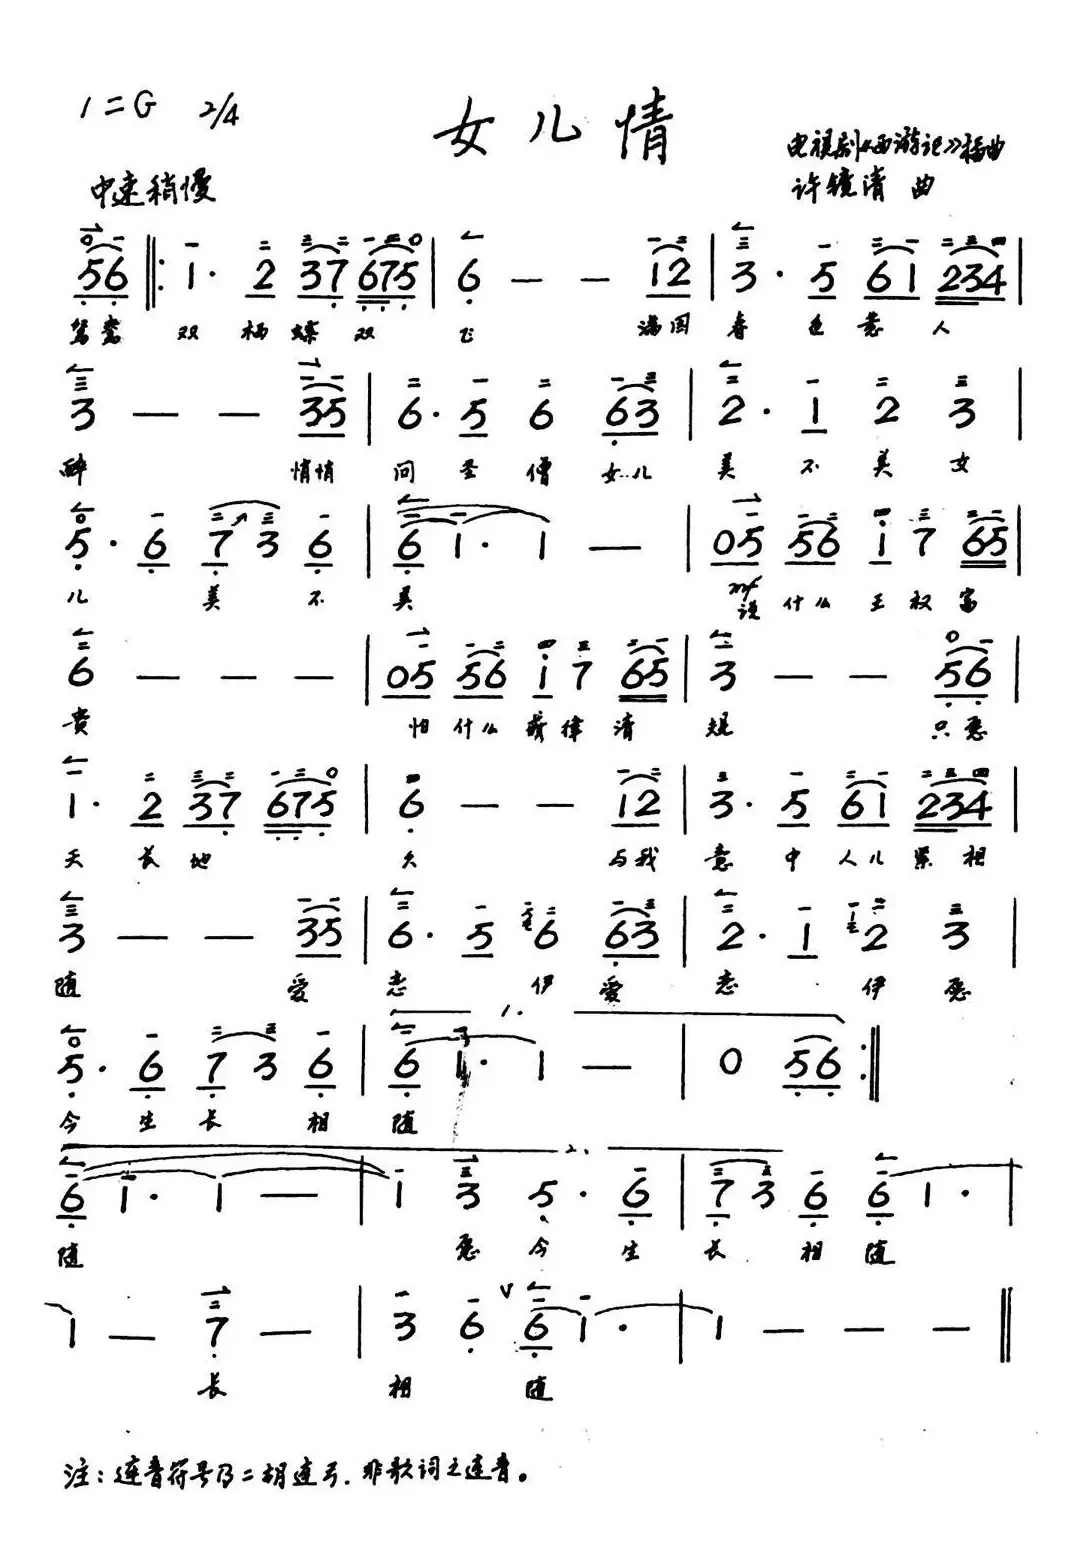 1=G 2/4
女儿情
电视剧《西游记》插曲
中速稍慢
许镜清 曲
56 ‖: 1· 2 37 675 | 6 - - 12 | 3· 5 61 234 |
鸳鸯 双 栖 蝶 双 飞 满园 春 色 惹 人
3 - - 35 | 6· 5 6 63 | 2· 1 2 3 |
醉 悄悄 问 圣 僧 女儿 美 不 美 女
5· 6 7 3 6 | 6 1· 1 - | 05 56 i 7 65 |
儿 美 不 美 mf 说 什么 王 权 富
6 - - - | 05 56 i 7 65 | 3 - - 56 |
贵 怕 什么 戒 律 清 规 只愿
1· 2 37 675 | 6 - - 12 | 3· 5 61 234 |
天 长 地 久 与我 意 中 人儿 紧 相
3 - - 35 | 6· 5 6 63 | 2· 1 2 3 |
随 爱 恋 伊 爱 恋 伊 愿
1.
5· 6 7 3 6 | 6 1· 1 - | 0 56 :‖
今 生 长 相 随
2.
6 1· 1 - | 1 3 5· 6 | 7 3 6 6 1· |
随 愿 今 生 长 相 随
1 - 7 - | 3 6 V 6 1· | 1 - - - ‖
长 相 随
注:连音符号乃二胡连弓,非歌词之连音。